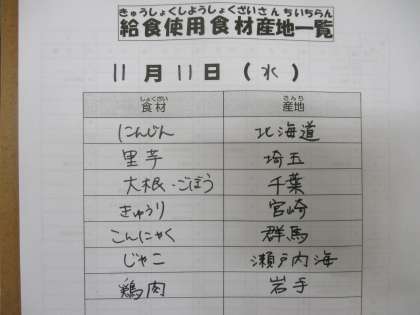 きゅうしょくしようしょくざいさんちいちらん
給食使用食材産地一覧
11月11日(水)
しょくざい さんち
食材 産地
にんじん 北海道
里芋 埼玉
大根・ごぼう 千葉
きゅうり 宮崎
こんにゃく 群馬
じゃこ 瀬戸内海
鶏肉 岩手